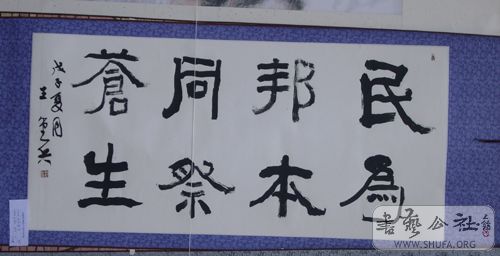 民為
邦本
同祭
蒼生
戊子夏月
王
書藝公社
WWW.SHUFA.ORG